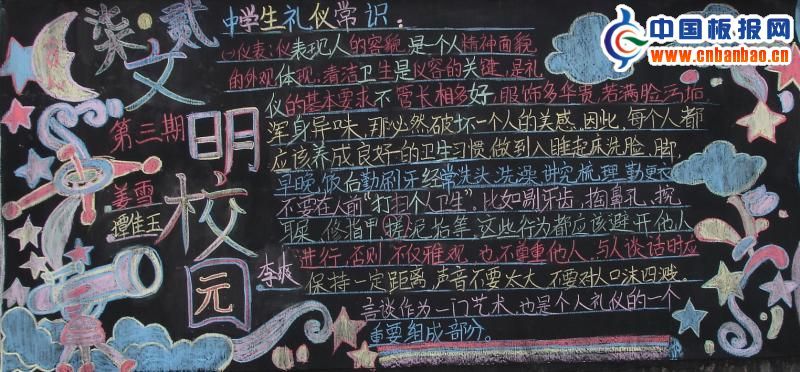 柒·贰
文明校园
第三期
姜雪
谭佳玉
李爽
中学生礼仪常识：
(一)仪表：仪表现人的容貌是一个人精神面貌
的外观体现,清洁卫生是仪容的关键,是礼
仪的基本要求不管长相多好,服饰多华贵,若满脸污垢
浑身异味,那必然破坏一个人的美感。因此,每个人都
应该养成良好的卫生习惯做到入睡起床洗脸、脚,
早晚、饭后勤刷牙经常洗头、洗澡,讲究梳理勤更衣
不要在人前"打扫个人卫生"。比如剔牙齿、掏鼻孔、挖
耳屎、修指甲、搓泥垢等,这些行为都应该避开他人
进行,否则,不仅雅观,也不尊重他人,与人谈话时应
保持一定距离,声音不要太大,不要对人口沫四溅。
言谈作为一门艺术,也是个人礼仪的一个
重要组成部分。
中国板报网
www.cnbanbao.cn